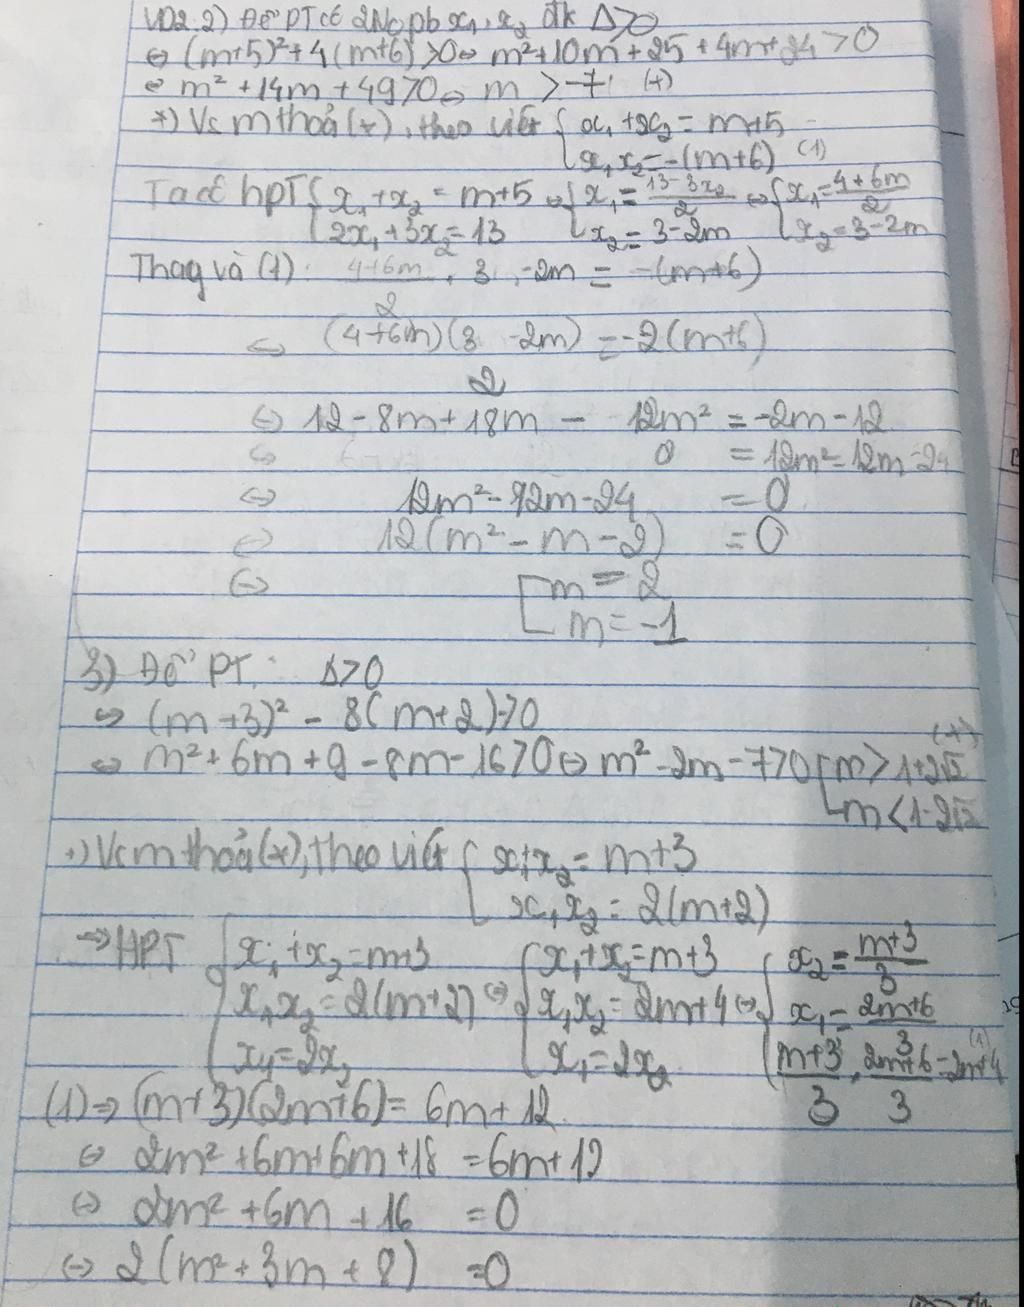 VD2.2) Để PT có 2No pb x₁, x₂ đk Δ>0
⇔ (m+5)²+4(m+6)>0 ⇔ m²+10m+25+4m+24>0
⇔ m²+14m+49>0 ⇔ m >-7 (*)
*) Vs m thoả (*), theo viét { x₁+x₂=m+5
x₁x₂=-(m+6) (1)
Ta có hpT { x₁+x₂=m+5 ⇔ { x₁=13-3x₂/2 ⇔ { x₁=4+6m/2
2x₁+3x₂=13 x₂=3-2m x₂=3-2m
Thay và (1) 4+6m/2 . 3 -2m = -(m+6)
⇔ (4+6m)(3 -2m) = -2(m+6)
2
⇔ 12-8m+18m - 12m² = -2m-12
⇔ 0 = 12m²-12m-24
⇔ 12m²-12m-24 =0
⇔ 12(m²-m-2) =0
⇔ [ m=2
m=-1
3) Để PT: Δ>0
⇔ (m+3)² - 8(m+2)>0
⇔ m²+6m+9-8m-16>0 ⇔ m²-2m-7>0 [ m>1+2√2 (*)
m<1-2√2
*) Vs m thoả (*), theo viét { x₁+x₂=m+3
x₁x₂=2(m+2)
→ HPT { x₁+x₂=m+3 { x₁+x₂=m+3 { x₂=m+3/3
x₁x₂=2(m+2) ⇔ x₁x₂=2m+4 ⇔ x₁=2m+6/3
x₁=2x₂ x₁=2x₂ m+3/3 . 2m+6/3 =2m+4 (1)
(1) ⇒ (m+3)(2m+6)= 6m+12
⇔ 2m²+6m+6m+18 =6m+12
⇔ 2m²+6m+16 =0
⇔ 2(m²+3m+8) =0